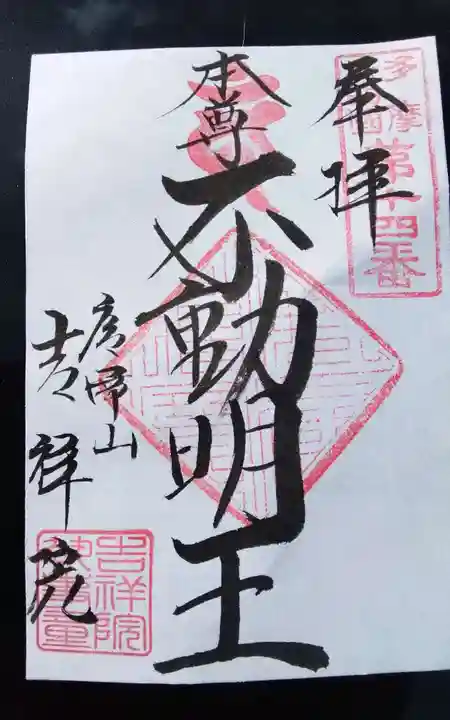 奉拝
多摩
第十四番
本尊
不動明王
彦帰山
吉祥院
吉祥院